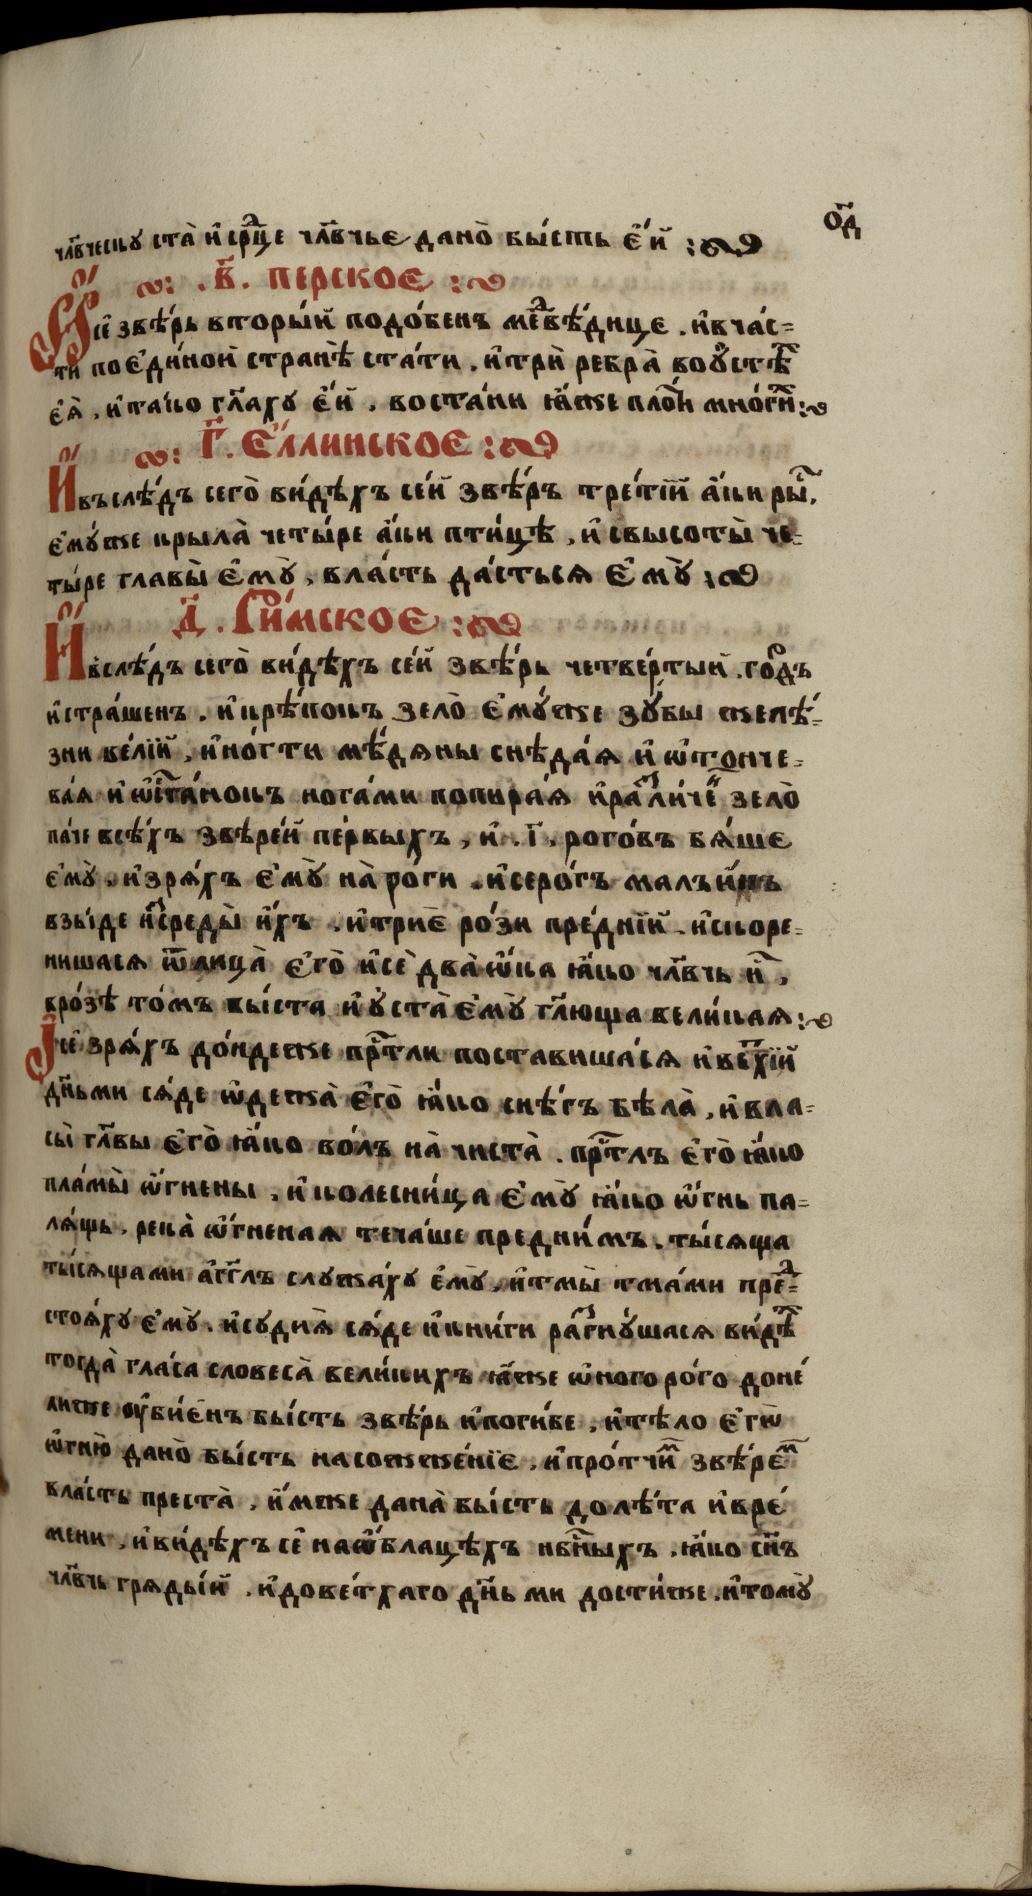 о҃д
чл҃вческу ста̀ и҆ ср҃дце чл҃вчье дано̀ бы́сть е҆́й :
: . в҃ . перское :
И҆ се҆ звѣ́рь вторы́й подо́бенъ медвѣ́дице . и҆ в час=
ти по е҆ди́ной странѣ̀ ста́ти . и҆ трѝ ребра̀ во у҆стѣх
е҆я̀ . и҆ тако гл҃аху е҆́й . воста́ни ꙗ҆́же пло́ти мно́ги :
: г҃ . Е҆́ллинское :
И҆ въслѣ́дъ сего̀ ви́дѣхъ се́й звѣ́ръ тре́тїй а҆́ки ры́с ,
е҆му́же крыла̀ четы́ре а҆́ки пти́цѣ , и҆ свысоты̀ че=
ты́ре главы̀ е҆му̀ , вла́сть да́стьсѧ е҆му̀ :
д҃ . Ри́мское :
И҆ вслѣ́дъ сего̀ ви́дѣхъ се́й звѣ́рь четве́ртый . гордъ
и҆ стра́шенъ . и҆ крѣ́покъ зело̀ е҆му́же зу́бы желѣ́=
зни ве́лїй , и҆ но́гти мѣ́дѧны снѣда́ѧ и҆ ѡ҆тонче=
ва́ѧ и҆ ѡ҆ста́нокъ нога́ми попира́ѧ и҆ разли́чен зело̀
па́че всѣ́хъ звѣре́й пе́рвыхъ , и҆ . і҃ . рого́въ бѧ́ше
е҆му̀ . и҆ зрѧ́хъ е҆му̀ на̀ ро́ги . и҆ се ро́гъ малъ и҆́нъ
взы́де и҆среды̀ и҆́хъ . и҆ трие҆ ро́зи пре́днїй . и҆ скоре=
нишасѧ ѿ лица̀ е҆го̀ и҆ сѐ два̀ ѡ҆́ка ꙗ҆́ко чл҃вчь и ,
в ро́зѣ то́мъ бы́ста и҆ у҆ста̀ е҆му̀ гл҃юща вели́каѧ :
И҆ се҆ зрѧ́хъ до́ндеже пр҃тли поставиша́сѧ и҆ ве́тхїй
дн҃ьми сѧ́де ѡ҆де́жа̀ е҆го̀ ꙗ҆́ко снѣ́гъ бѣла̀ , и҆ вла=
сы̀ гл҃вы е҆го̀ ꙗ҆́ко во́лъ на̀ чиста̀ . пр҃тлъ е҆го̀ ꙗ҆́ко
пла́мы̀ ѡ҆́гнены . и҆ колесни́ца е҆му̀ ꙗ҆́ко ѡ҆́гнь па=
лѧ́щь . река̀ ѡ҆́гненаѧ теча́ше пред ни́мъ . ты́сѧща
ты́сѧщами а҆́гг҃лъ служа́ху е҆му̀ . и҆ тмы̀ тма́ми пред=
стоѧ́ху е҆му̀ . и҆ судиѧ̀ сѧ́де и҆ кни́ги разгну́шасѧ ви́дѣх
тогда̀ гла́са словеса̀ вели́кихъ ꙗ҆́же ѡ҆ного ро́го доне́
лиже оу҆бие́нъ бы́сть звѣ́рь и҆ поги́бе , и҆ тѣ́ло е҆гѡ̀
ѡ҆гню̀ дано̀ бы́сть на сожже́нїе , и҆ про́тчим звѣ́рем
вла́сть преста̀ , и҆́мже дана̀ бы́сть до лѣ́та и҆ вре́
мени , и҆ ви́дѣхъ се҆ на ѡ҆́блацѣхъ нбⷭ҇ныхъ . ꙗ҆́ко сн҃ъ
чл҃вчь грѧды́й . и҆ до ве́тхаго дн҃ьми дости́же . и҆ тому̀